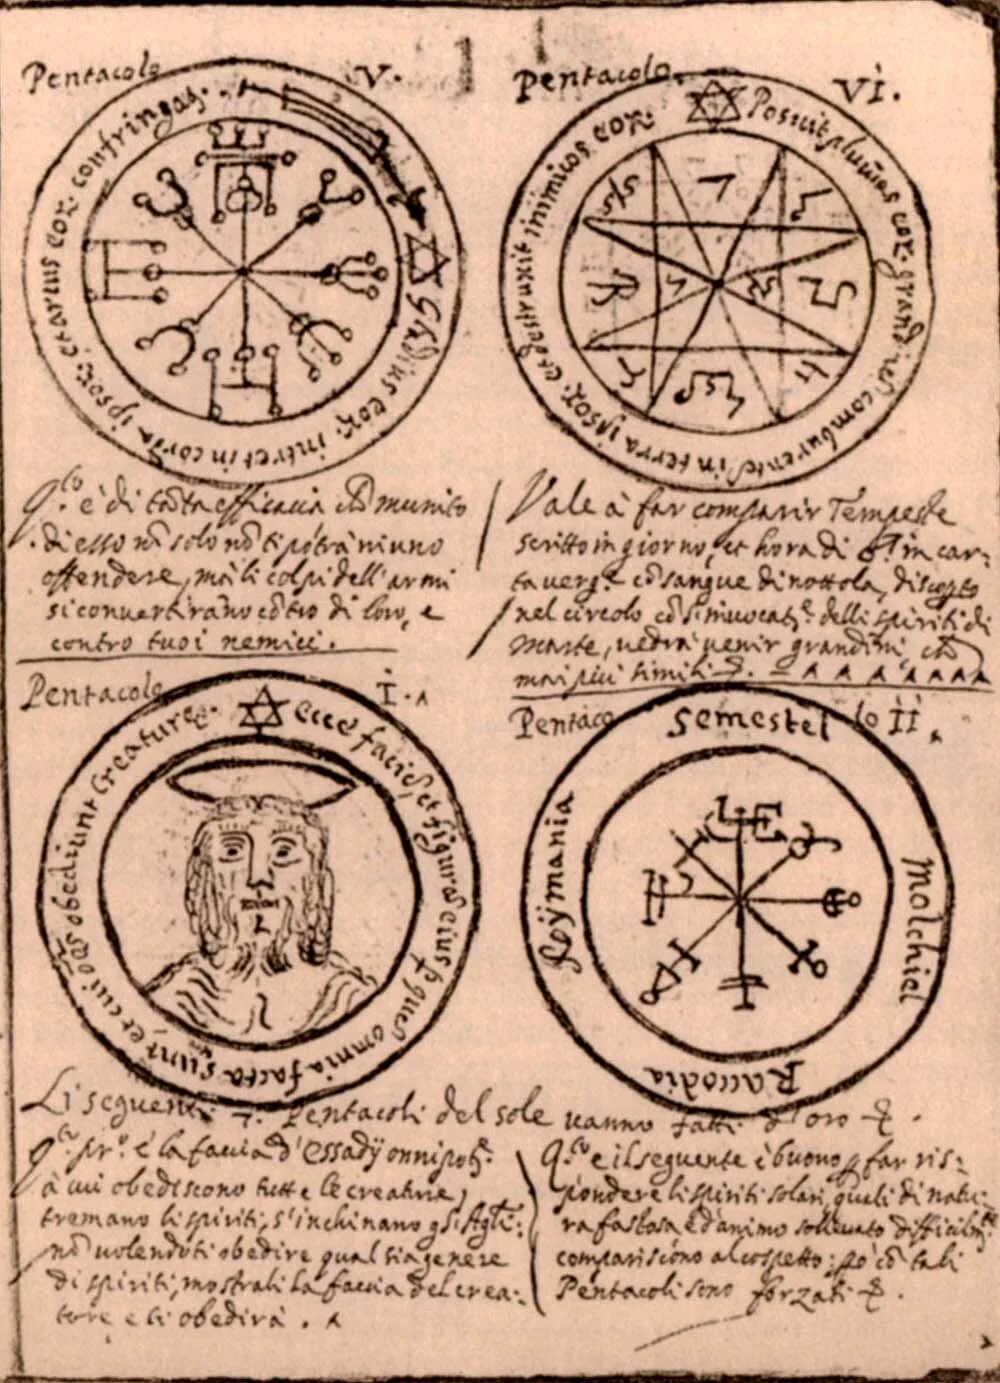 Pentacolo V.
Gladius eor: intret in corda ipsor: et arcus eor: confringas.
Pentacolo VI.
Posuit pluvias eor: grandines comburentes in terra ipsor: et destruxit inimicos eor:
è di tanta efficacia munito
di esso nõ solo nõ ti potrà niuno
offendere, mà li colpi dell'armi
si convertirãno cõtro di loro, e
contro tuoi nemici.
Vale à far comparir Tempeste
scritto in giorno, et hora di ♂ in car-
ta verg: cõ sangue di nottola, discopto
nel circolo cõ invocat: delli spiriti di
Marte, vedrai venir grandini,
mai più simili
Pentacolo I.
ecce facies, et figura eius p quem omnia facta sunt, et cui oẽs obediunt Creature.
Pentacolo II.
Semestel
Molchiel
Raccodia
Reymania
Li seguenti 7. Pentacoli del sole vanno fatti d'oro
è la faccia d'Essadÿ onnipot:
à cui obediscono tutte le creature,
tremano li spiriti, s'inchinano gl'Agti:
nõ volendoti obedire qual sia genere
di spiriti, mostrali la faccia del crea:
tore e ti obedirà.
e il seguente è buono p far ris:
pondere li spiriti solari, quali di natu:
ra fastosa e d'animo sollevato difficilm:
compariscono al cospetto; però cõ tali
Pentacoli sono forzati